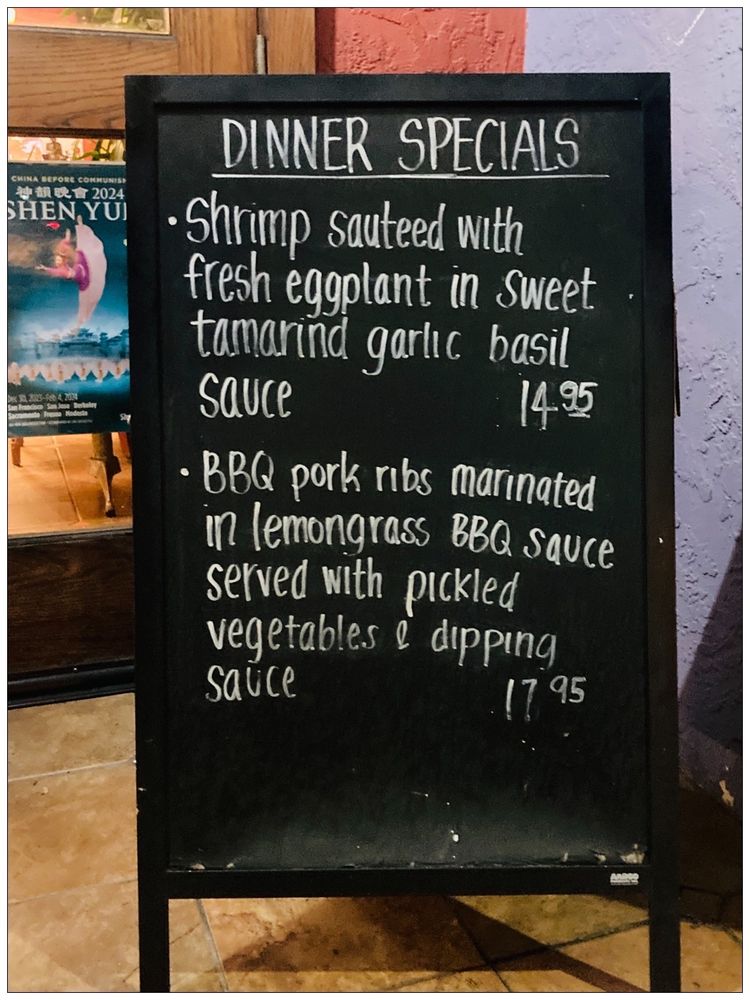 DINNER SPECIALS
• Shrimp sauteed with
fresh eggplant in sweet
tamarind garlic basil
sauce 14.95
• BBQ pork ribs marinated
in lemongrass BBQ sauce
served with pickled
vegetables & dipping
sauce 17 95
CHINA BEFORE COMMUNISM
神韻晚會 2024
SHEN YU
Dec 30, 2023-Feb 4, 2024
San Francisco San Jose Berkeley
Sacramento Fresno Modesto
AARCO